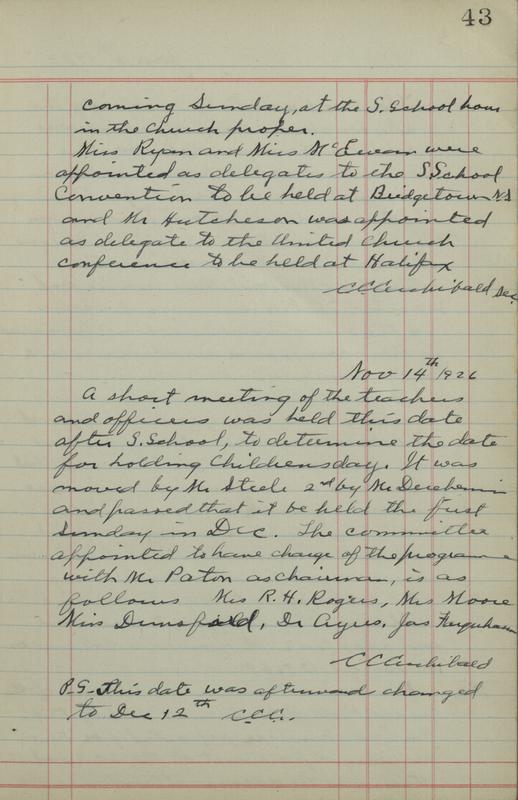 43
coming Sunday, at the S. School hour
in the church proper.
Miss Ryan and Miss McEwan were
appointed as delegates to the S School
Convention to be held at Bridgetown N.S
and Mr Hutcheson was appointed
as delegate to the United Church
conference to be held at Halifax
C C Archibald Sec.
Nov 14th 1926
A short meeting of the teachers
and officers was held this date
after S. School, to determine the date
for holding Childrens day. It was
moved by Mr Steele 2nd by Mr
and passed that it be held the first
Sunday in Dec. The committee
appointed to have charge of the programe
with Mr Paton as chairman, is as
follows Mrs R. H. Rogers, Mrs Moore
Miss Dunsfield, Dr Ayres, Jas Furquharson
C C Archibald
P.S. This date was afterward changed
to Dec 12th C.C.A.